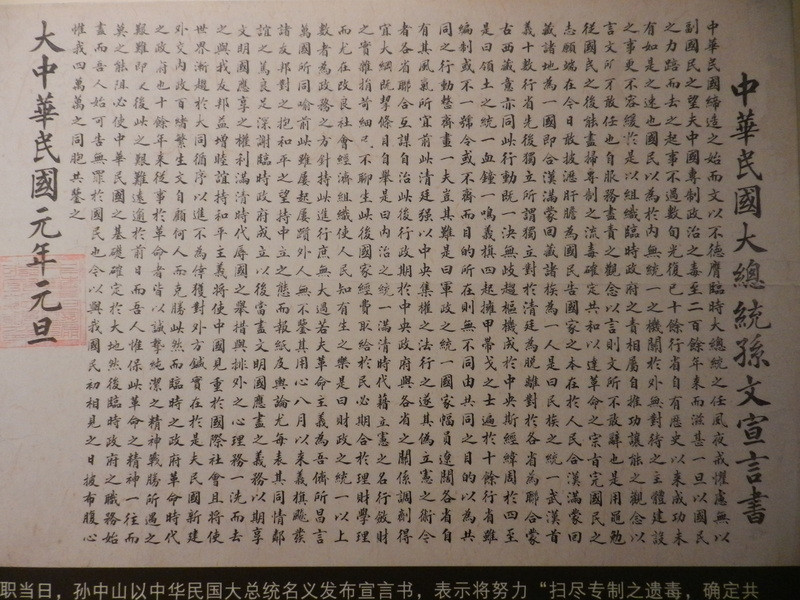 中華民國大總統孫文宣言書
中華民國締造之始而文以不德膺臨時大總統之任夙夜戒懼慮無以
副國民之望夫中國專制政治之毒至二百餘年來而滋甚一旦以國民
之力踣而去之起事不過數旬光復已十餘行省自有歷史以來成功未
有如是之速也國民以為於內無統一之機關於外無對待之主體建設
之事更不容緩於是以組織臨時政府之責相屬自推功讓能之觀念以
言文所不敢任也自服務盡責之觀念以言則文所不敢辭也是用黽勉
從國民之後能盡掃專制之流毒確定共和以達革命之宗旨完國民之
志願端在今日敢披瀝肝膽為國民告國家之本在於人民合漢滿蒙回
藏諸地為一國即合漢滿蒙回藏諸族為一人是曰民族之統一武漢首
義十數行省先後獨立所謂獨立對於清廷為脫離對於各省為聯合蒙
古西藏意亦同此行動既一決無歧趨樞機成於中央斯經緯周於四至
是曰領土之統一血鐘一鳴義旗四起擁甲帶戈之士遍於十餘行省雖
編制或不一號令或不齊而目的所在則無不同由共同之目的以為共
同之行動整齊畫一夫豈其難是曰軍政之統一國家幅員遼闊各省自
有其風氣所宜前此清廷强以中央集權之法行之遂其偽立憲之術今
者各省聯合互謀自治此後行政期於中央政府與各省之關係調劑得
宜大綱既挈條目自舉是曰內治之統一滿清時代藉立憲之名行斂財
之實雜捐苛細民不聊生此後國家經費取給於民必期合於理財學理
而尤在改良社會經濟組織使人民知有生之樂是曰財政之統一以上
數者為政務之方針持此進行庶無大過若夫革命主義為吾儕所昌言
萬國所同喻前此雖屢起屢躓外人無不鑒其用心八月以來義旗飈發
諸友邦對之抱和平之望持中立之態而報紙及輿論尤每表其同情鄰
誼之篤良足深謝臨時政府成立以後當盡文明國應盡之義務以期享
文明國應享之權利滿清時代辱國之舉措與排外之心理務一洗而去
之與我友邦益增睦誼持和平主義將使中國見重於國際社會且將使
世界漸趨於大同循序以進不為倖獲對外方鍼實在於是夫民國新建
外交內政百緒繁生文自顧何人而克勝此然而臨時之政府革命時代
之政府也十餘年來從事於革命者皆以誠摯純潔之精神戰勝所遇之
艱難即使後此之艱難遠逾於前日而吾人惟保此革命之精神一往而
莫之能阻必使中華民國之基礎確定於大地然後臨時政府之職務始
盡而吾人始可告無罪於國民也今以與我國民初相見之日披布腹心
惟我四萬萬之同胞共鑒之
大中華民國元年元旦
职当日，孙中山以中华民国大总统名义发布宣言书，表示将努力“扫尽专制之遗毒，确定共